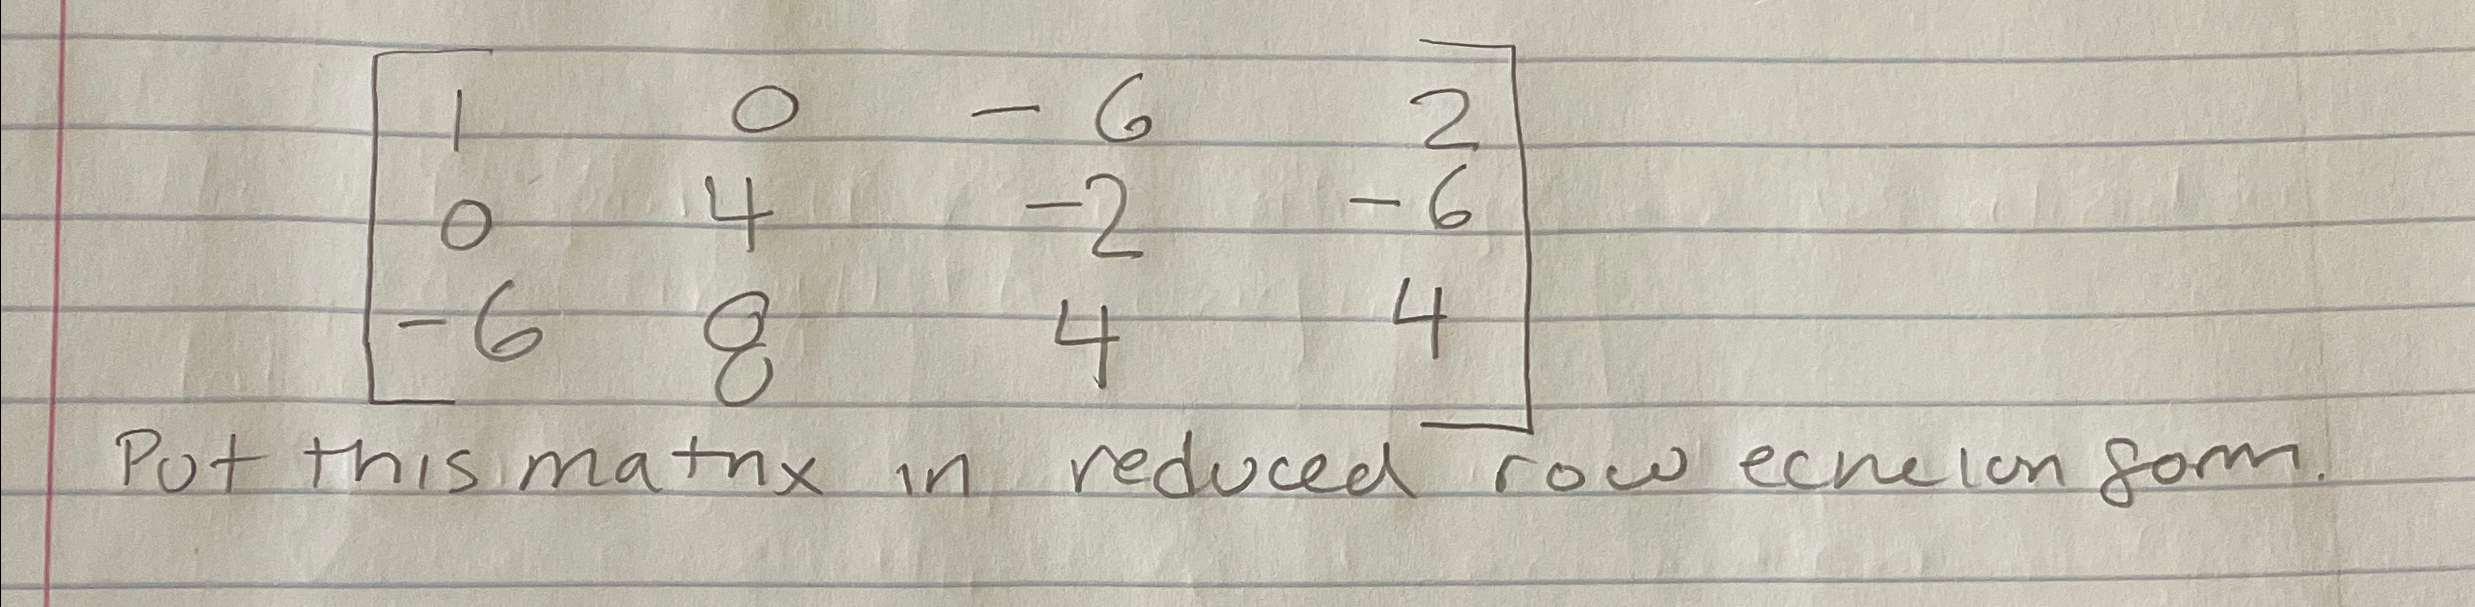 1 0 -6 2
0 4 -2 -6
-6 8 4 4
Put this matrix in reduced row echelon form.